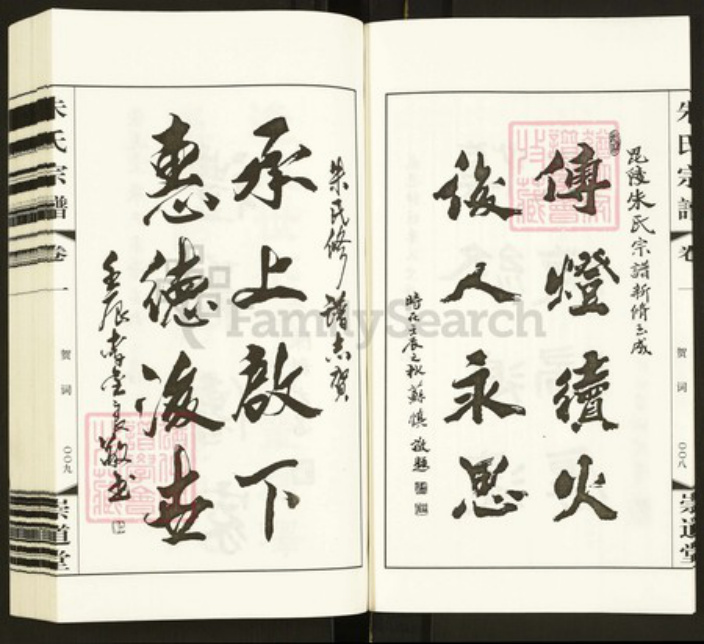 朱氏宗譜
卷一
贺词
〇〇八
崇道堂
毘陵朱氏宗譜新修告成
傳燈續火
後人永思
時在壬辰之秋蘇慎敬題
朱氏修譜志賀
承上啟下
惠德後世
壬辰
敬书
朱氏宗譜
卷一
贺词
〇〇九
崇道堂
FamilySearch